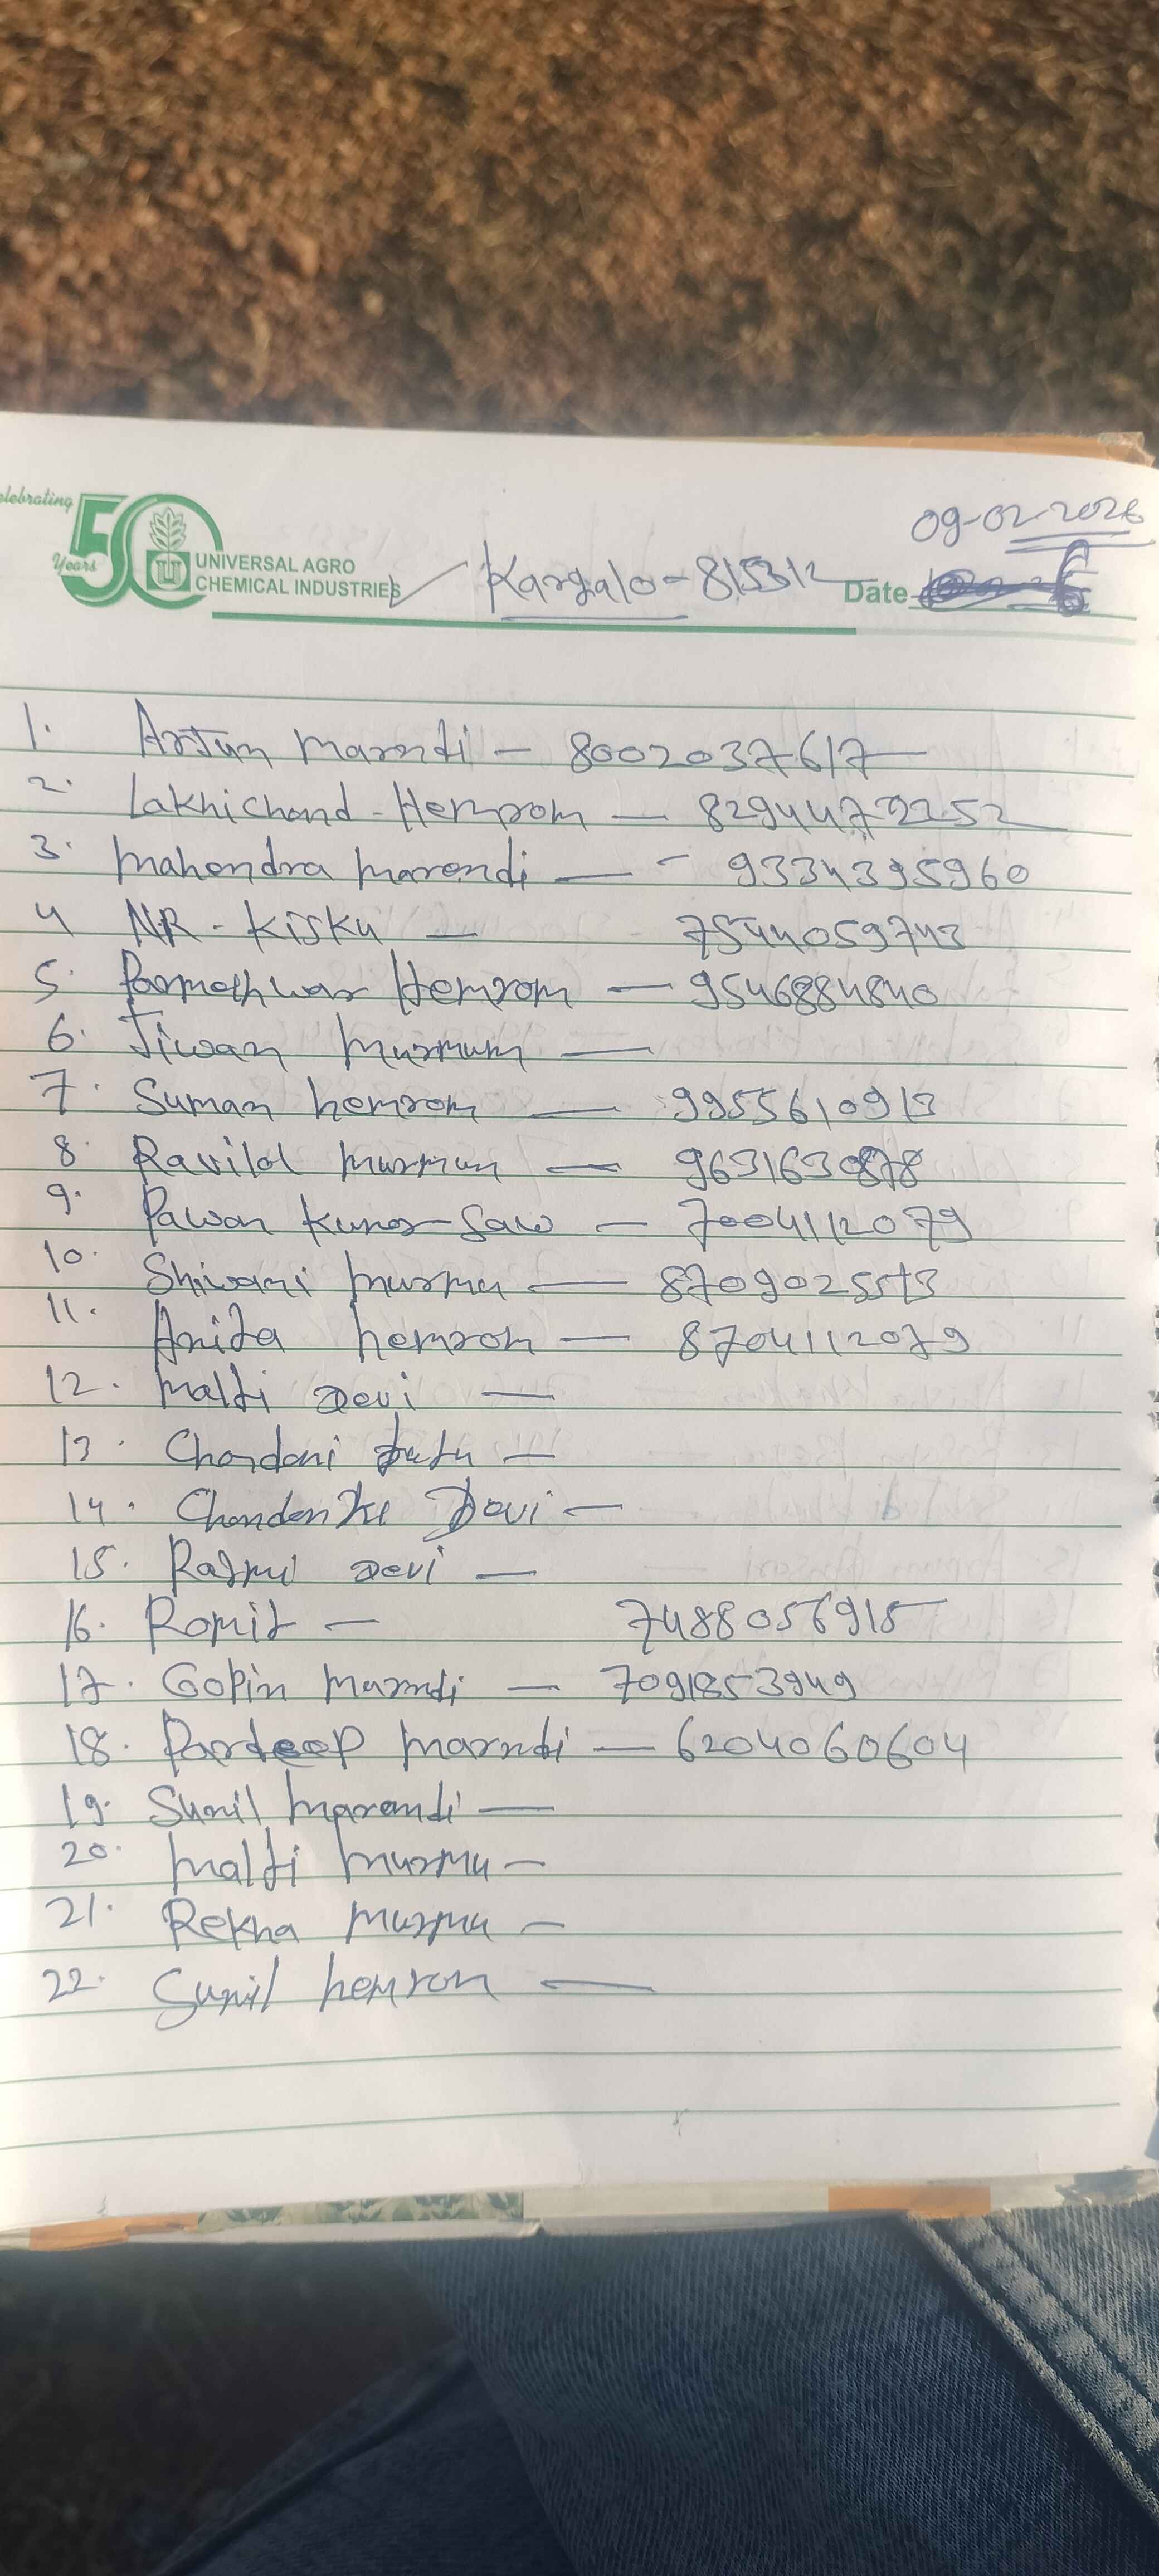 Celebrating
50
Years
UNIVERSAL AGRO
CHEMICAL INDUSTRIES
09-02-2026
Kargalo - 815312
Date
1. Arjun Marndi - 8002037617
2. Lakhichand - Hemrom - 8294472252
3. Mahendra Marendi - 9334395960
4 NR - Kisku - 7544059743
5. Parmeshwar Hemrom - 9546884840
6. Jiwan Murmum -
7. Suman hemrom - 9955610913
8. Ravilal Murmun - 9631630878
9. Pawan Kumar Saw - 7004112079
10. Shivani Murmu - 8709025513
11. Anita hemrom - 8704112079
12. Malti Devi -
13. Chandani -
14. Devi -
15. Rasmi Devi -
16. Romit - 7488056915
17. Gopin Marndi - 7091853949
18. Pardeep Marndi - 6204060604
19. Sunil Marandi -
20. Malti Murmu -
21. Rekha Murmu -
22. Sunil hemron -